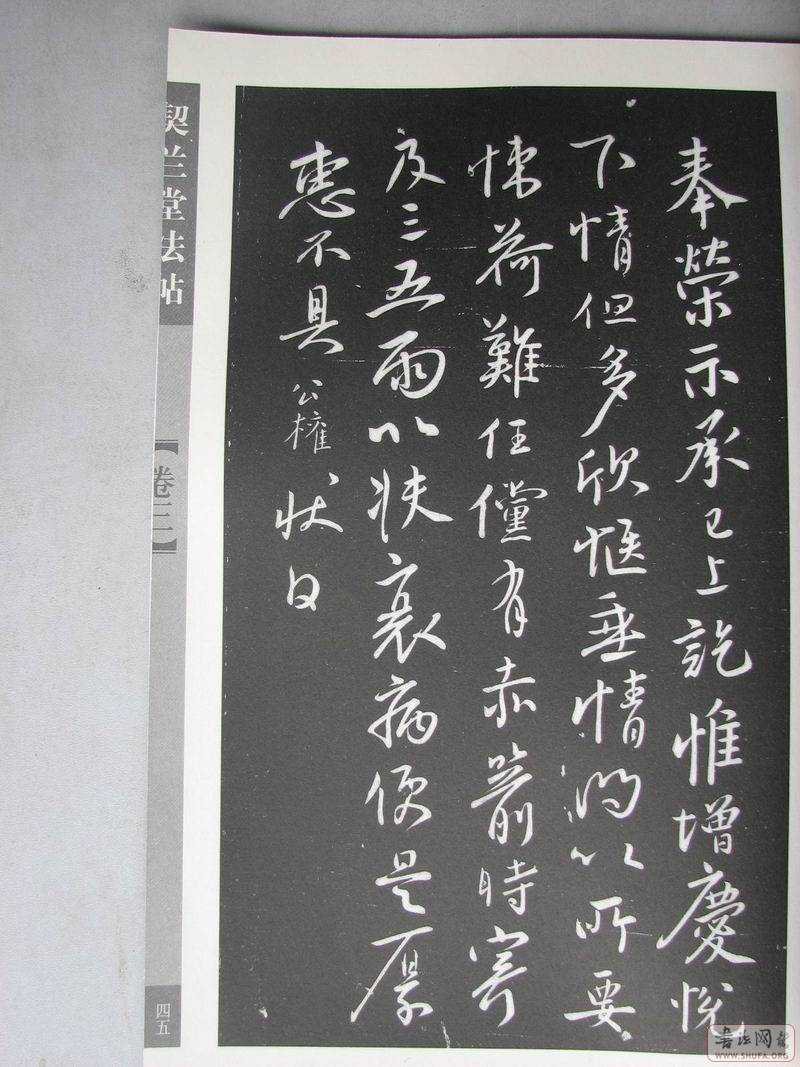 奉榮示承已上訖惟增慶悅
下情但多欣愜垂情問以所要
悚荷難任儻有赤箭時寄
及三五兩以扶衰病便是厚
惠不具公權狀白
契兰堂法帖
【卷三】
四五
书法网
WWW.SHUFA.ORG